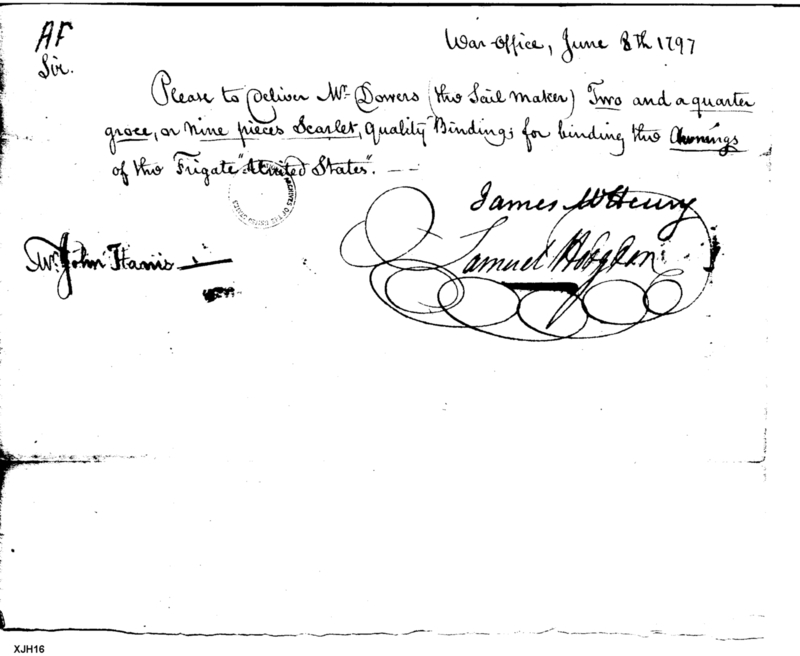 AF
War-Office, June 8th 1797
Sir.
Please to Deliver Mr. Dowers (the Sail maker) Two and a quarter
groce, or nine pieces Scarlet, quality Binding; for binding the Awnings
of the Frigate "United States".
ARCHIVES OF THE UNITED STATES
James McHenry
Mr. John Harris
Samuel Hodgdon
XJH16